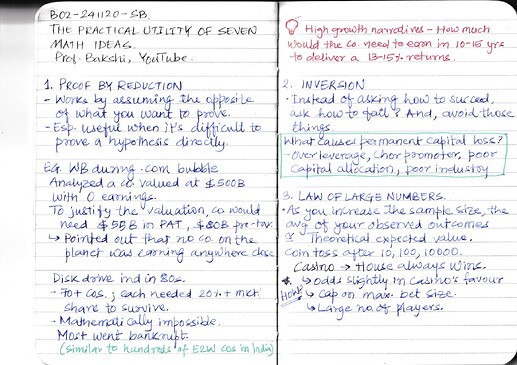 B02-241120-SB.
THE PRACTICAL UTILITY OF SEVEN
MATH IDEAS.
Prof. Bakshi, YouTube.
1. PROOF BY REDUCTION
- Works by assuming the opposite
of what you want to prove.
- Esp. useful when it's difficult to
prove a hypothesis directly.
EG. WB during .com bubble
Analyzed a co valued at $500B
with 0 earnings.
To justify the valuation, co would
need $55B in PAT, $80B pre-tax.
↳ Pointed out that no co. on the
planet was earning anywhere close
Disk drive ind in 80s.
- 70+ cos.; each needed 20%+ mkt
share to survive.
- Mathematically impossible.
Most went bankrupt.
(similar to hundreds of E2W cos in India)
High growth narratives - How much
would the co. need to earn in 10-15 yrs
to deliver a 13-15% returns.
2. INVERSION
- Instead of asking how to succeed,
ask how to fail? And, avoid those
things.
What causes permanent capital loss?
- over leverage, chor promoter, poor
capital allocation, poor industry
3. LAW OF LARGE NUMBERS.
- As you increase the sample size, the
avg of your observed outcomes
≈ Theoretical expected value.
Coin toss after 10, 100, 10000.
Casino → House always wins.
↳ odds slightly in casino's favour
HOW? ↳ Cap on max. bet size.
↳ Large no. of players.